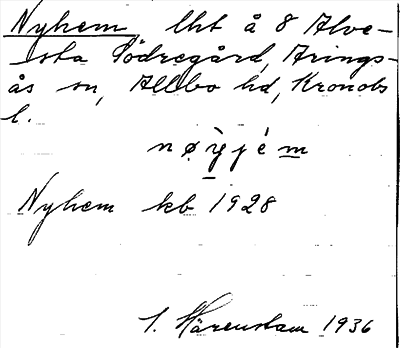 Nyhem, lht å 8 Alve-
sta Södregård, Arings-
ås sn, Allbo hd, Kronobs
l.
Nyhem kb 1928
1. Härenstam 1936